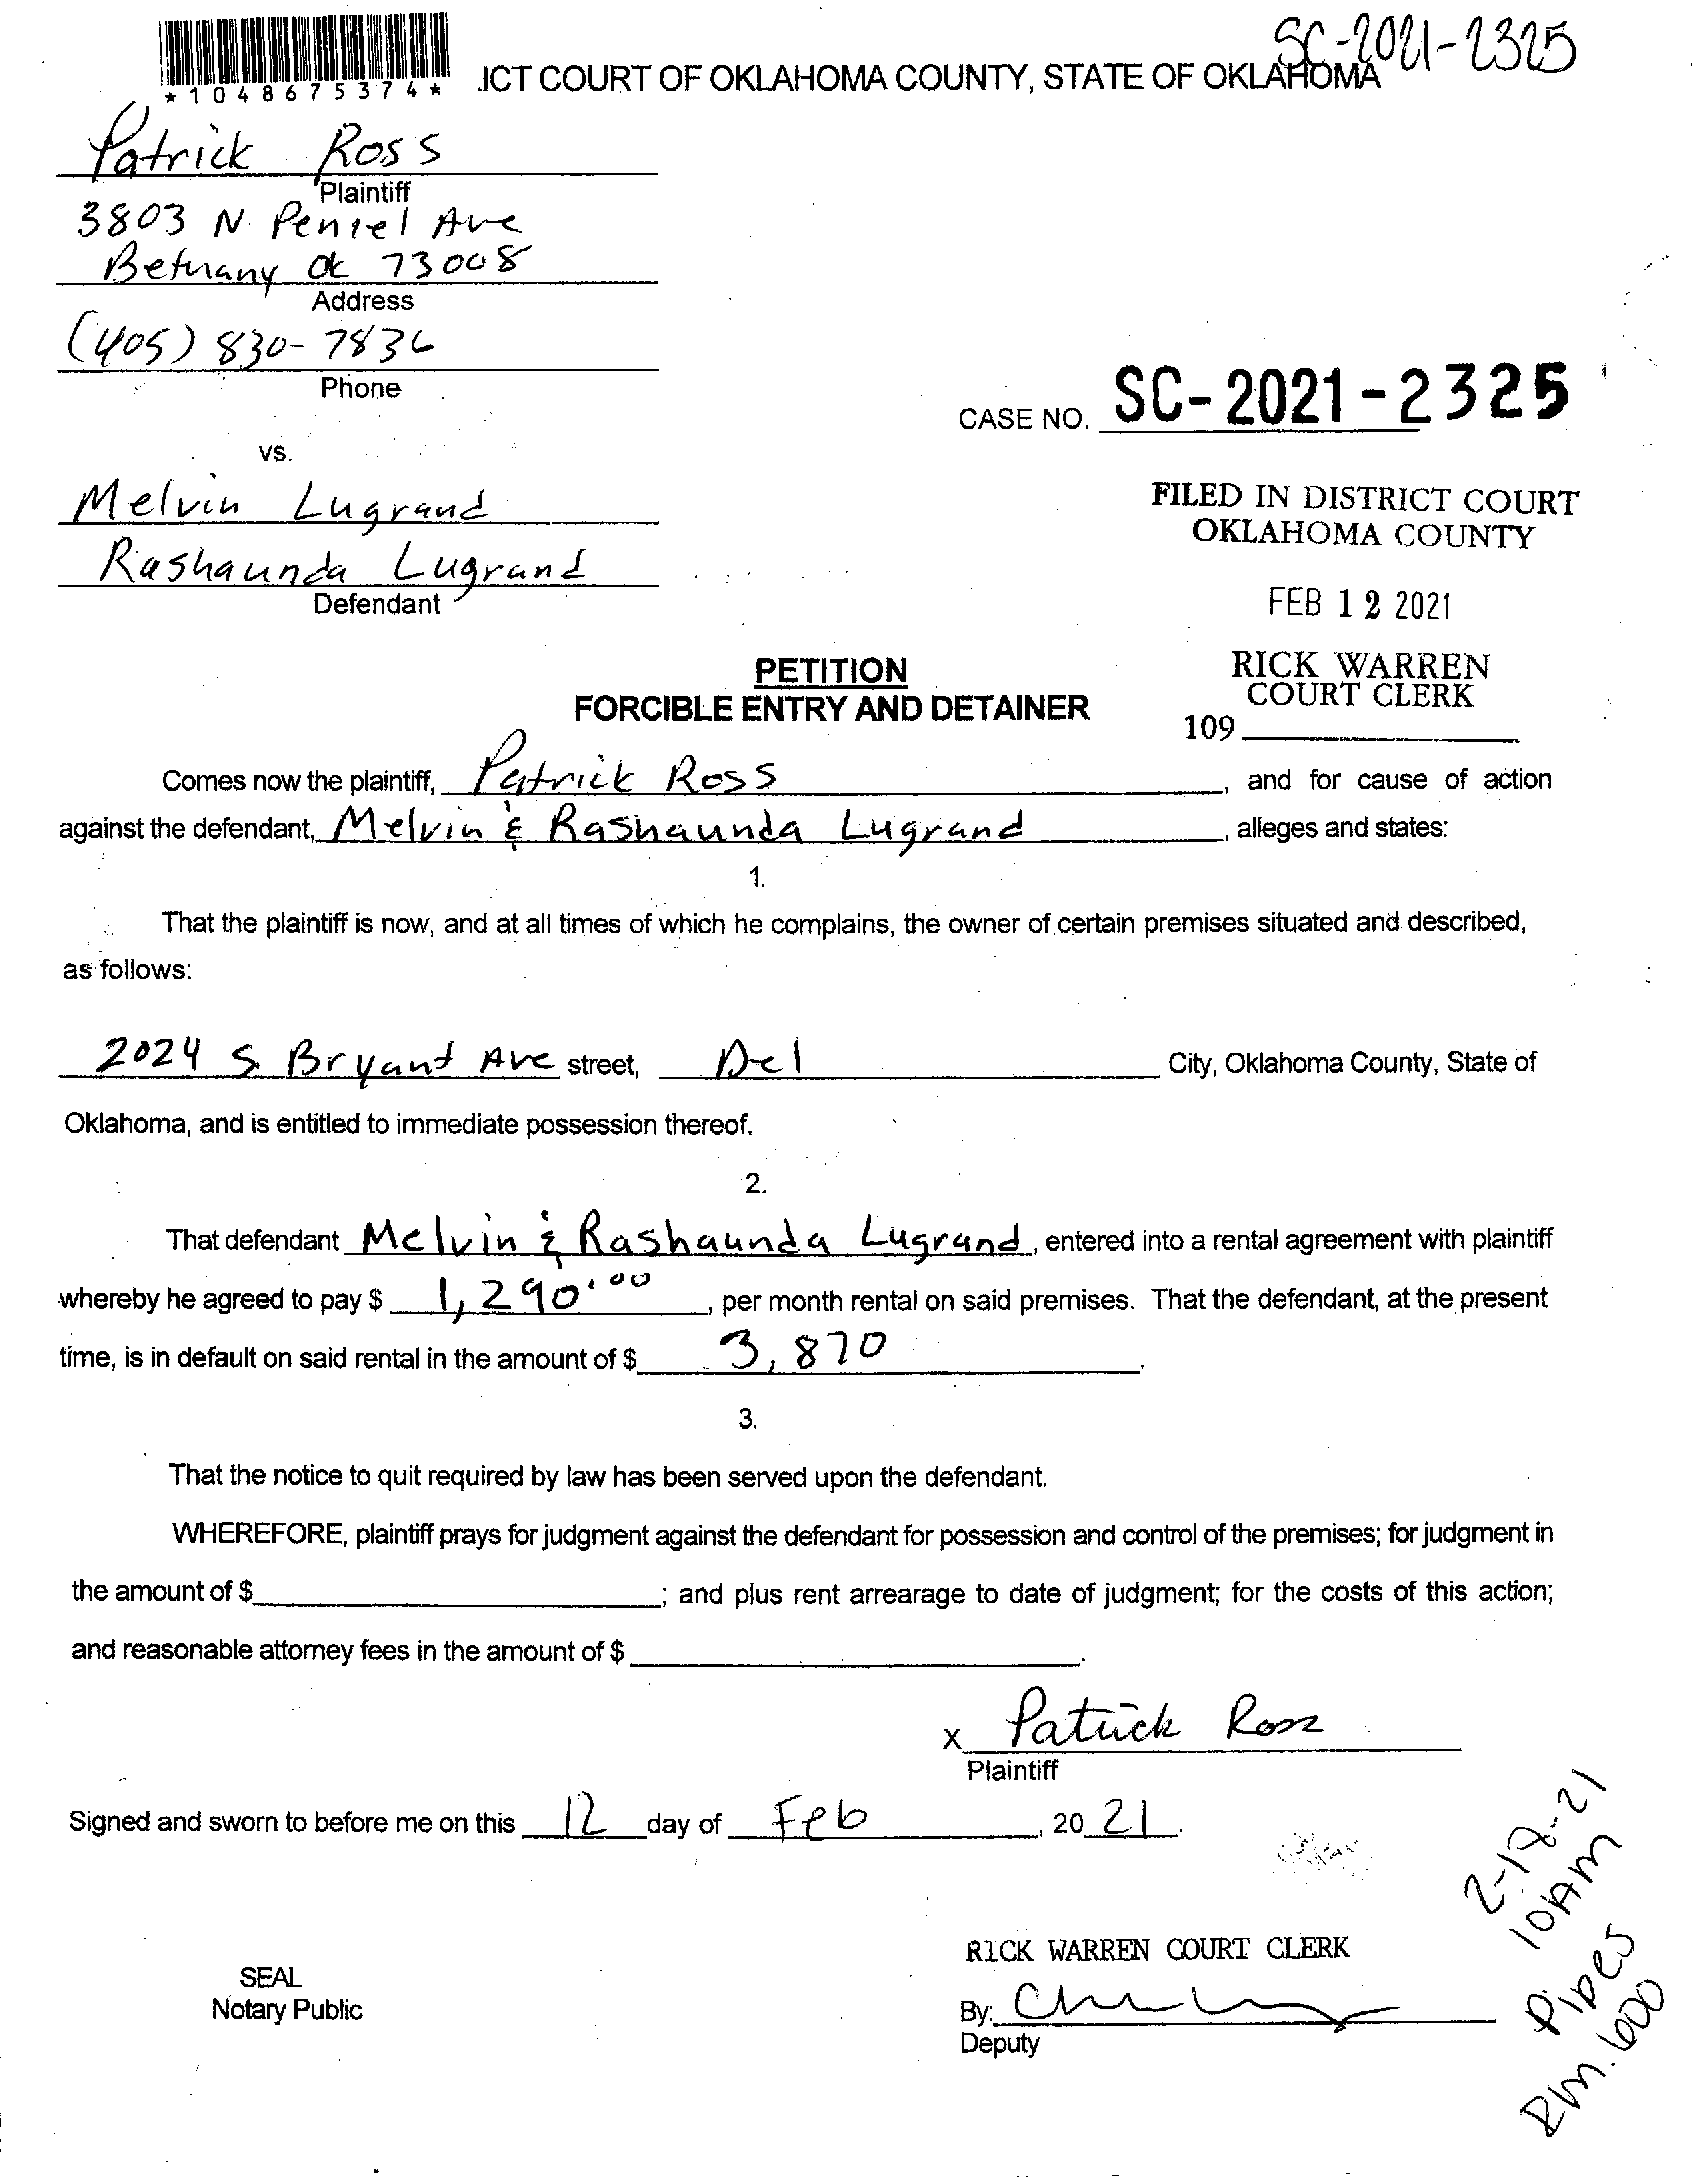 SC-2021-2325
*1048675374*
.ICT COURT OF OKLAHOMA COUNTY, STATE OF OKLAHOMA
Patrick Ross
Plaintiff
3803 N. Peniel Ave
Bethany Ok 73008
Address
(405) 830-7836
Phone
CASE NO. SC-2021-2325
vs.
Melvin Lugrand
Rashaunda Lugrand
Defendant
FILED IN DISTRICT COURT
OKLAHOMA COUNTY
FEB 12 2021
RICK WARREN
COURT CLERK
109
PETITION
FORCIBLE ENTRY AND DETAINER
Comes now the plaintiff, Patrick Ross, and for cause of action
against the defendant, Melvin & Rashaunda Lugrand, alleges and states:
1.
That the plaintiff is now, and at all times of which he complains, the owner of certain premises situated and described,
as follows:
2024 S Bryant Ave street, Del City, Oklahoma County, State of
Oklahoma, and is entitled to immediate possession thereof.
2.
That defendant Melvin & Rashaunda Lugrand, entered into a rental agreement with plaintiff
whereby he agreed to pay $ 1,290.00, per month rental on said premises. That the defendant, at the present
time, is in default on said rental in the amount of $ 3,870.
3.
That the notice to quit required by law has been served upon the defendant.
WHEREFORE, plaintiff prays for judgment against the defendant for possession and control of the premises; for judgment in
the amount of $; and plus rent arrearage to date of judgment; for the costs of this action;
and reasonable attorney fees in the amount of $.
X Patrick Ross
Plaintiff
Signed and sworn to before me on this 12 day of Feb, 20 21.
RICK WARREN COURT CLERK
SEAL
Notary Public
By:
Deputy
2-18-21
10AM
Pipes
Rm. 600